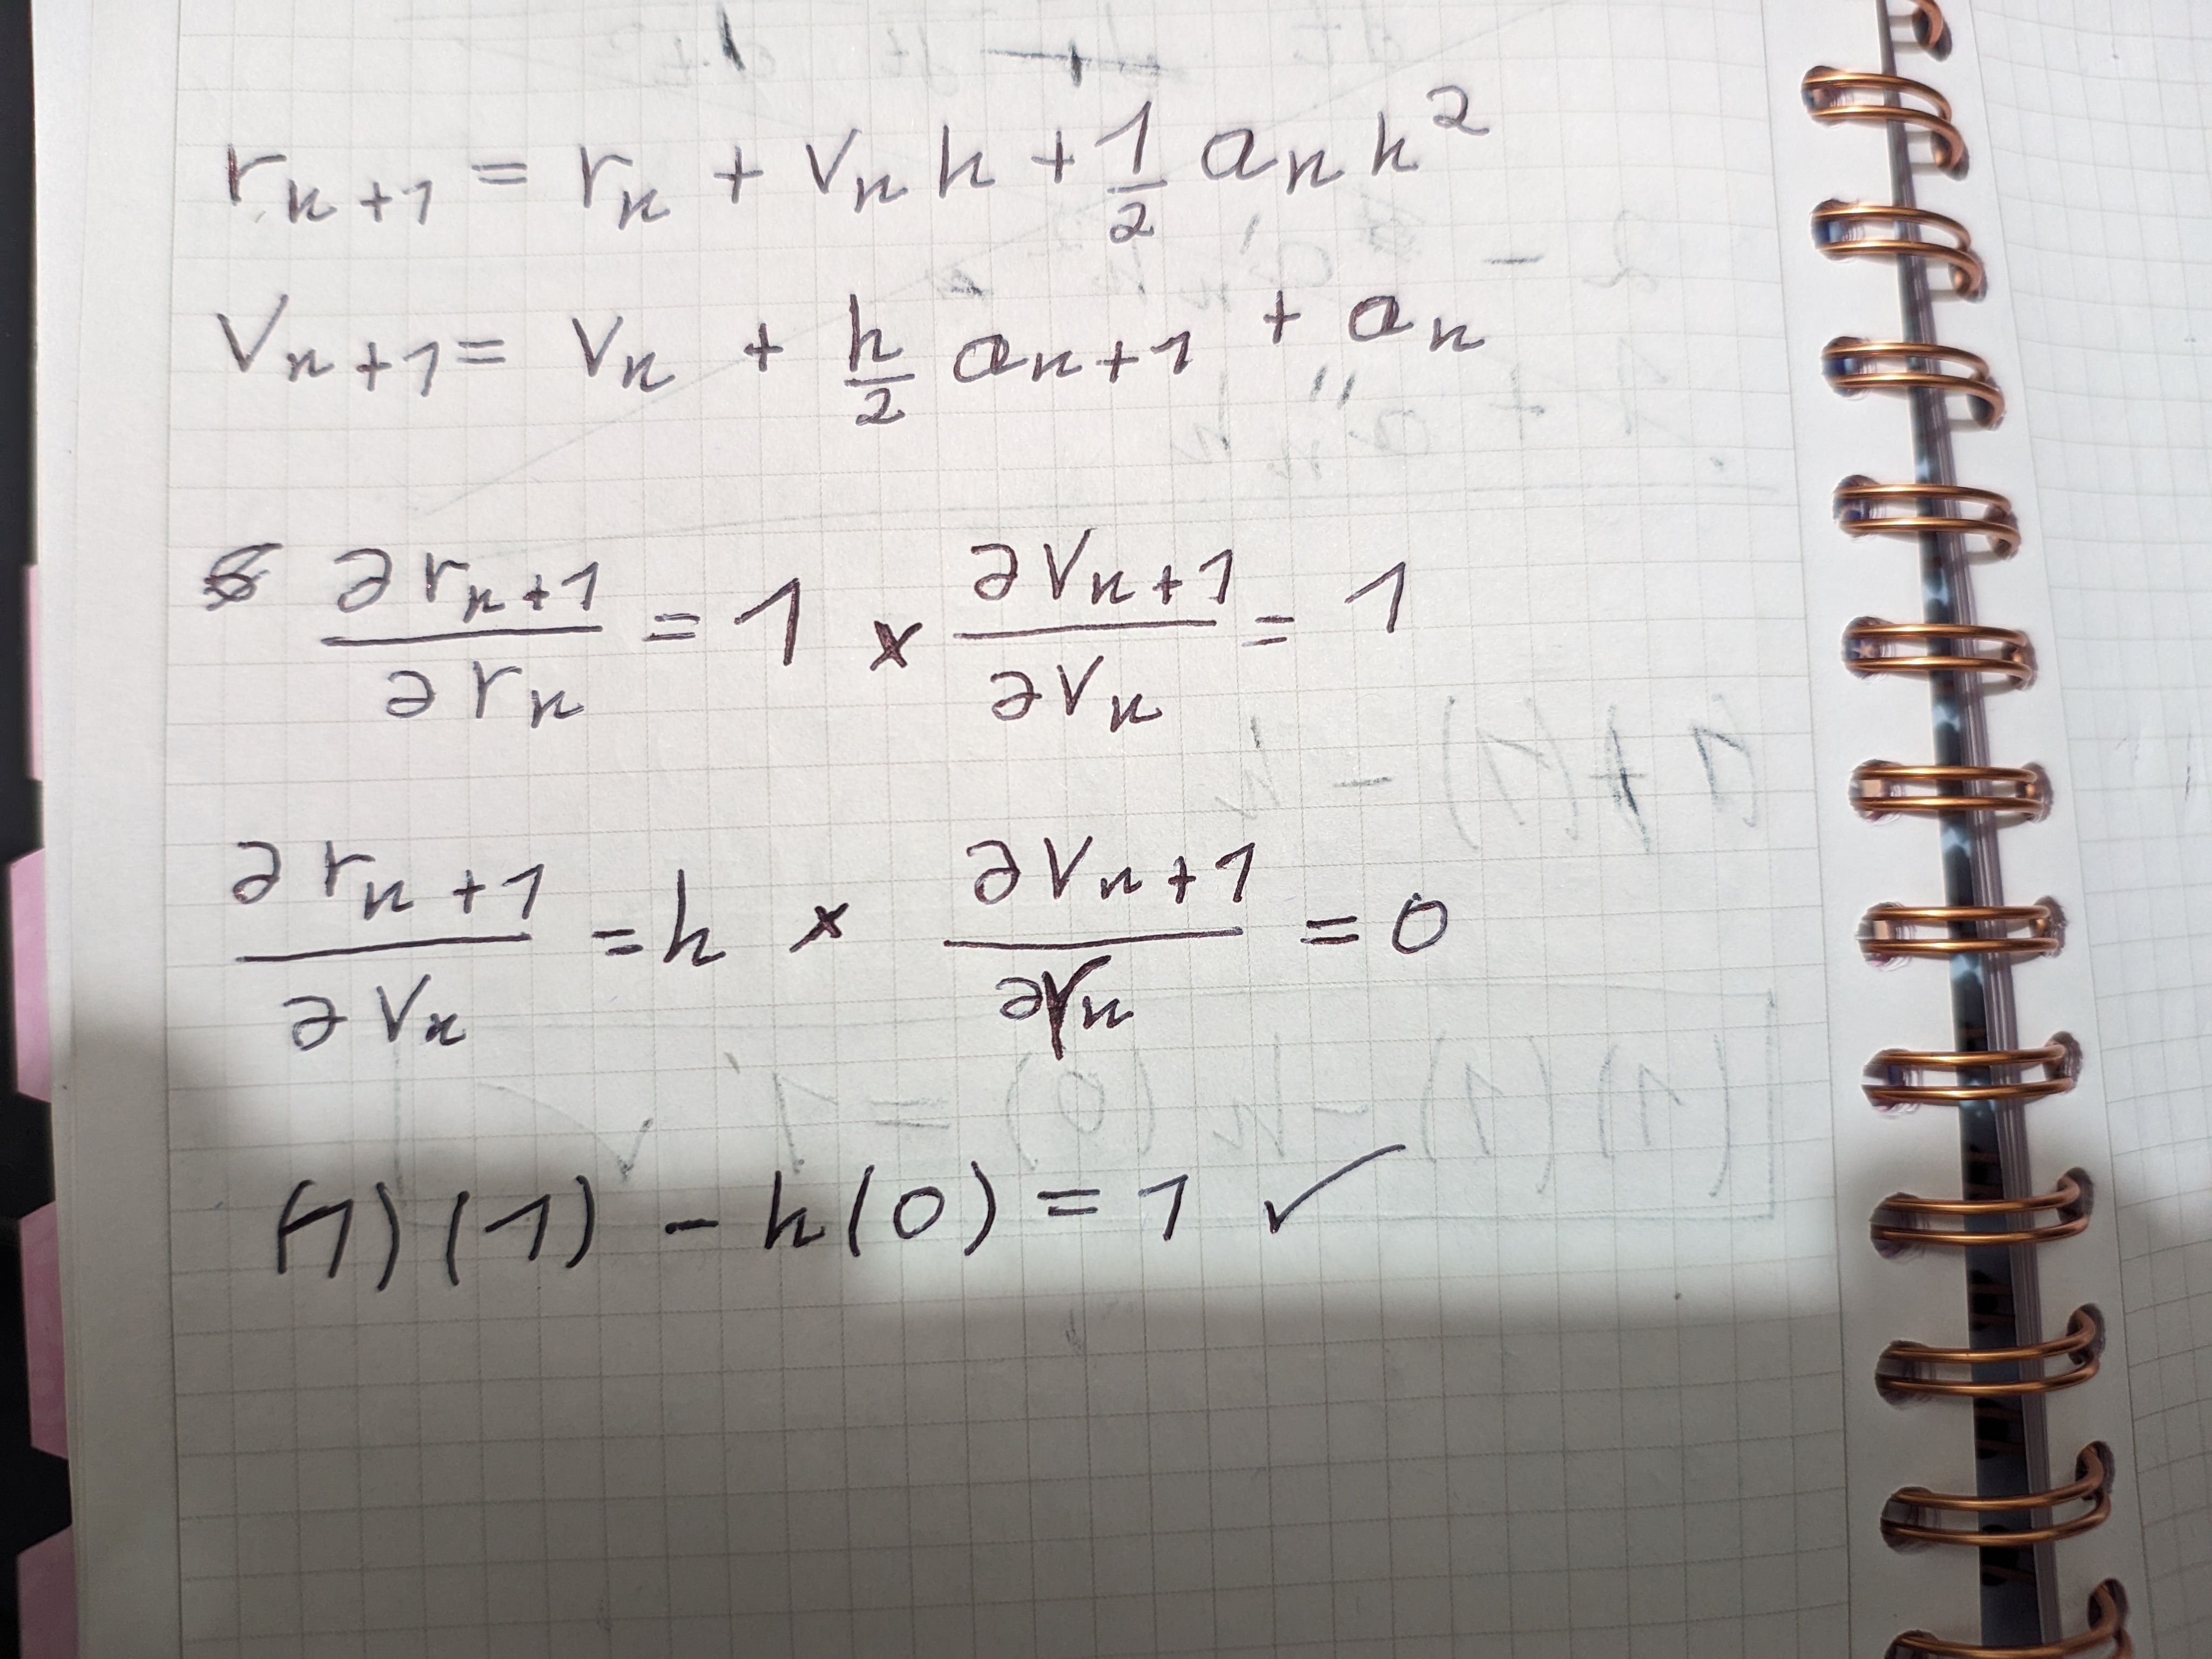 rₙ₊₁ = rₙ + vₙ h + 1/2 aₙ h²
vₙ₊₁ = vₙ + h/2 aₙ₊₁ + aₙ
∂rₙ₊₁/∂rₙ = 1 × ∂vₙ₊₁/∂vₙ = 1
∂rₙ₊₁/∂vₙ = h × ∂vₙ₊₁/∂rₙ = 0
(1)(1) - h(0) = 1 ✓